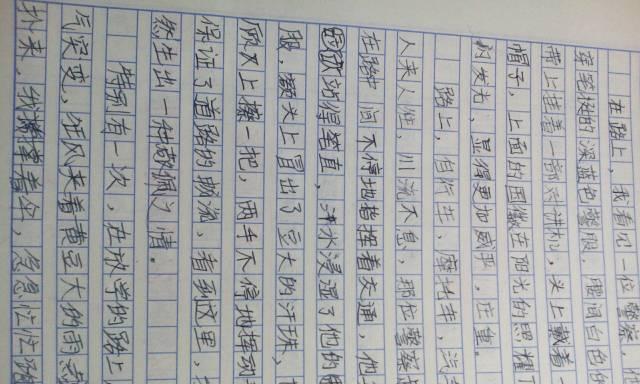 在路上，我看见一位警察，
笔挺的深蓝色警服，腰间白色的
带上挂着一部对讲机。头上戴着
帽子，上面的国徽在阳光的照耀下
闪发光，显得更加威严、庄重。
路上，自行车，摩托车，汽
人来人往，川流不息，那位警察
在路中间不停地指挥着交通，他
站得笔直，汗水浸透了他的
服，额头上冒出了豆大的汗珠，
上擦一把，两手不停地挥动
保证了道路的畅流，看到这里，
然生出一种敬佩之情。
有一次，在放学的路上
气突变，狂风夹着黄豆大的雨
扑来，我撑着伞，急急忙忙